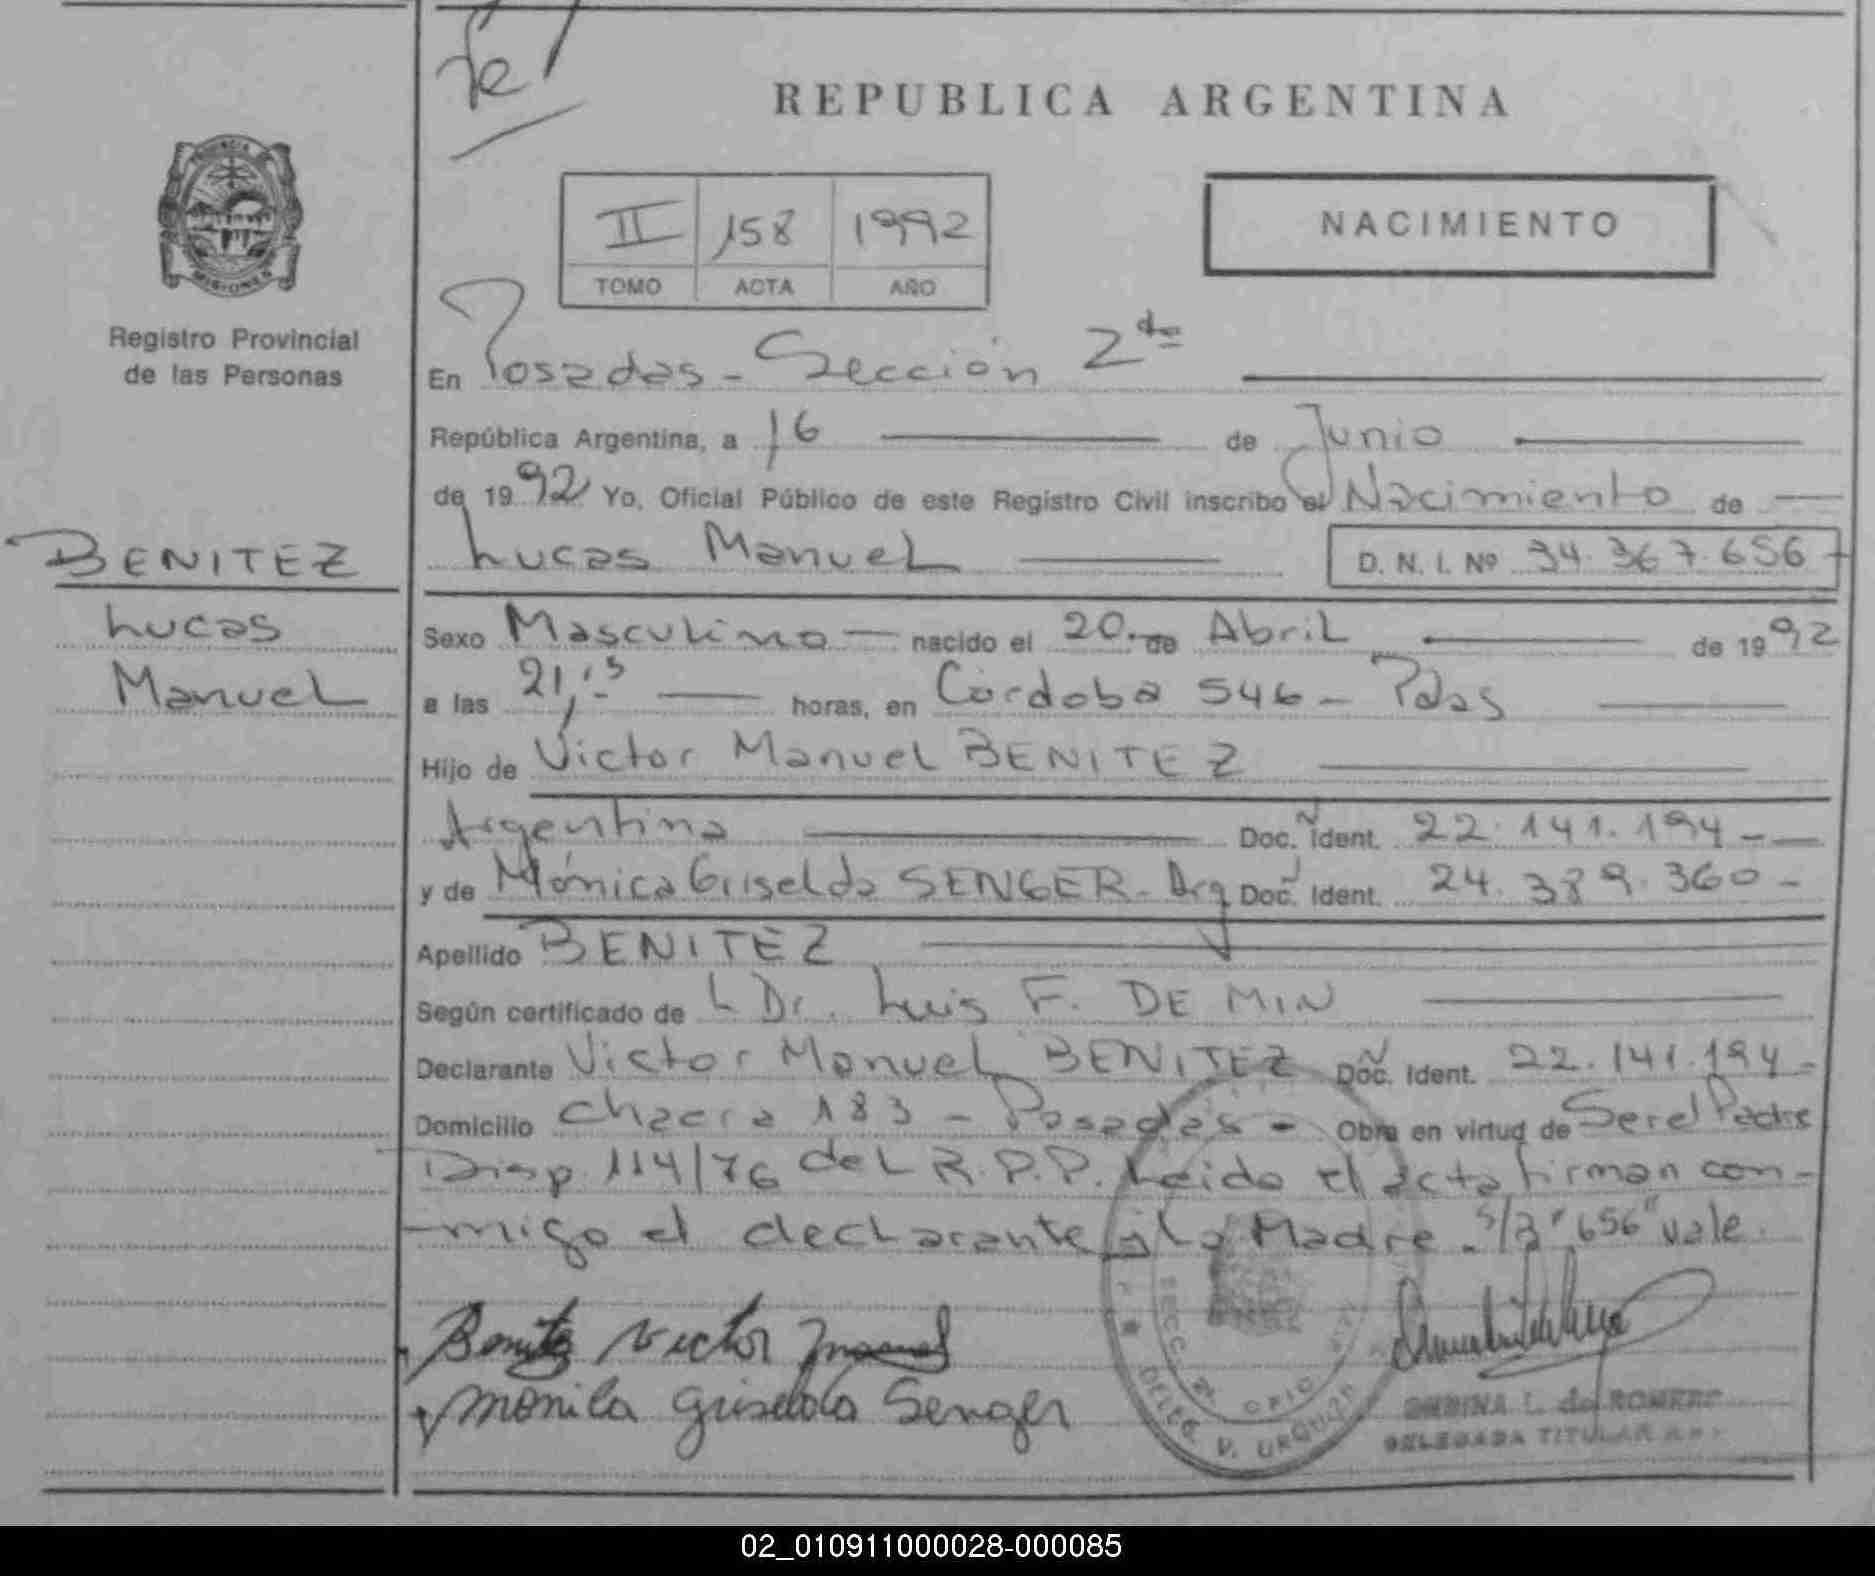 fe!
REPUBLICA ARGENTINA
PROVINCIA DE
MISIONES
Registro Provincial
de las Personas
II 158 1992
TOMO ACTA AÑO
NACIMIENTO
En Posadas - Sección 2da
República Argentina, a 16 de Junio
de 1992 Yo, Oficial Público de este Registro Civil inscribo el Nacimiento de
BENITEZ
Lucas
Manuel
Lucas Manuel D. N. I. Nº 34.367.656
Sexo Masculino nacido el 20 de Abril de 1992
a las 21,15 horas, en Córdoba 546 - Pdas
Hijo de Victor Manuel BENITEZ
Argentina Doc. Ident. 22.141.194
y de Mónica Griselda SENGER - Arg Doc. Ident. 24.389.360
Apellido BENITEZ
Según certificado de L Dr. Luis F. DE MIN
Declarante Victor Manuel BENITEZ Doc. Ident. 22.141.194
Domicilio Chacra 183 - Posadas - Obra en virtud de Ser el Padre
Disp. 114/76 del R.P.P. Leida el acta firman con-
migo el declarante y la Madre. S/R "656" vale.
Benitez Victor Manuel
Monica Griselda Senger
SECC. 2ª OFIC.
DELEG. V. URQUIZA
L. de ROMERO
DELEGADA TITULAR
02_010911000028-000085